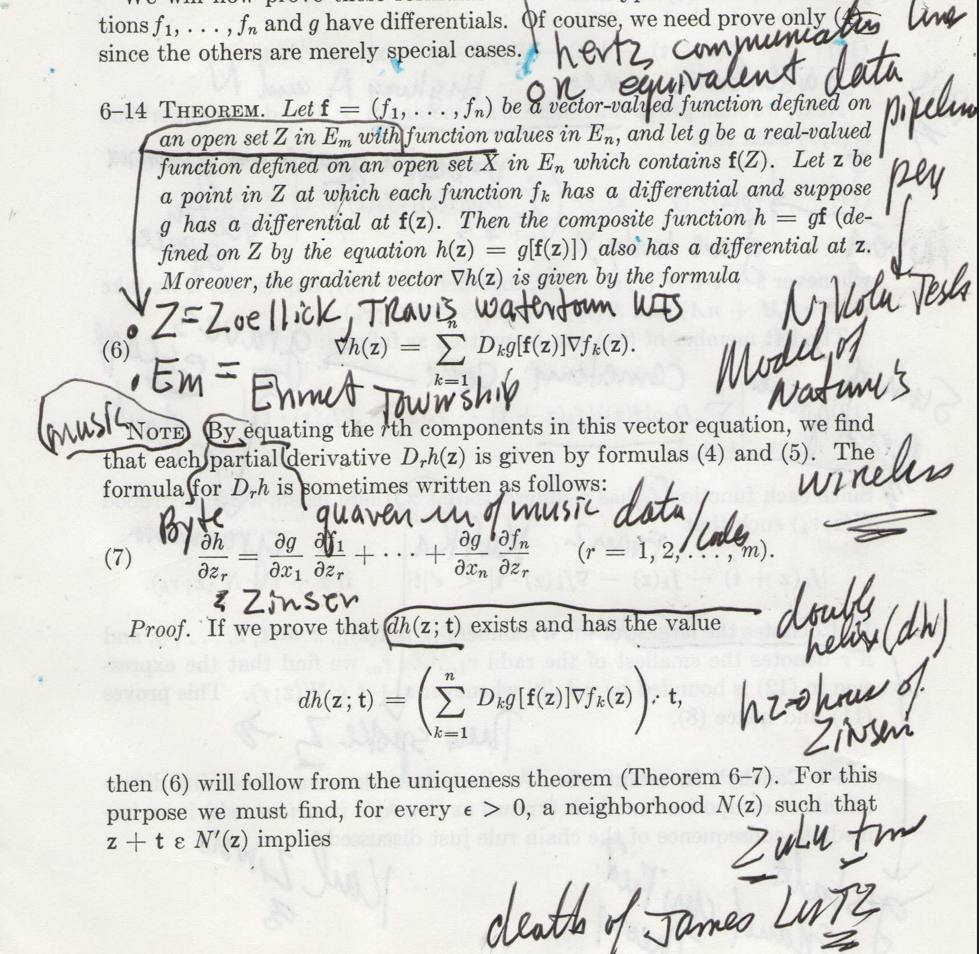 tions f₁, . . . , fₙ and g have differentials. Of course, we need prove only (
since the others are merely special cases.
line
hertz communication
or equivalent data
pipeline
per
6–14 THEOREM. Let f = (f₁, . . . , fₙ) be a vector-valued function defined on
an open set Z in Eₘ with function values in Eₙ, and let g be a real-valued
function defined on an open set X in Eₙ which contains f(Z). Let z be
a point in Z at which each function fₖ has a differential and suppose
g has a differential at f(z). Then the composite function h = gf (de-
fined on Z by the equation h(z) = g[f(z)]) also has a differential at z.
Moreover, the gradient vector ∇h(z) is given by the formula
Nikola Tesla
Model of
Nature's
wireless
• Z = Zoellick, Travis Watertown WI
(6) ∇h(z) = ∑ₖ₌₁ⁿ Dₖg[f(z)]∇fₖ(z).
• Em = Emmet Township
music
NOTE. By equating the rth components in this vector equation, we find
that each partial derivative Dᵣh(z) is given by formulas (4) and (5). The
formula for Dᵣh is sometimes written as follows:
Byte of music data / codes
(7) ∂h/∂zᵣ = ∂g/∂x₁ ∂f₁/∂zᵣ + · · · + ∂g/∂xₙ ∂fₙ/∂zᵣ (r = 1, 2, . . . , m).
& Zinser
Proof. If we prove that dh(z; t) exists and has the value
double
helix (dh)
dh(z; t) = (∑ₖ₌₁ⁿ Dₖg[f(z)]∇fₖ(z)) · t,
of
Zinser
then (6) will follow from the uniqueness theorem (Theorem 6–7). For this
purpose we must find, for every ϵ > 0, a neighborhood N(z) such that
z + t ε N′(z) implies
Zulu time
death of James Lutz